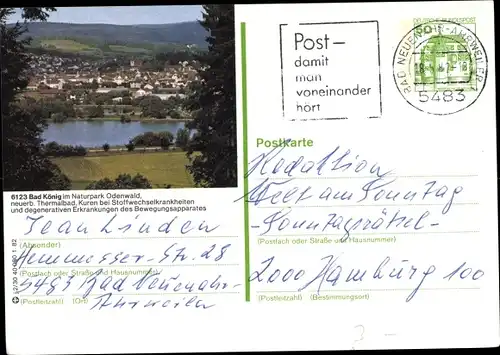 DEUTSCHE BUNDESPOST
BAD NEUENAHR-AHRWEILER
5483
Post-
damit
man
voneinander
hört
Postkarte
6123 Bad König im Naturpark Odenwald,
neuerb. Thermalbad, Kuren bei Stoffwechselkrankheiten
und degenerativen Erkrankungen des Bewegungsapparates
Jean Linden
(Absender)
Str. 28
(Postfach oder Straße und Hausnummer)
5483 Bad Neuenahr-
Ahrweiler
(Postleitzahl) (Ort)
Redaktion
Welt am Sonntag
Sonntagsrätsel-
(Postfach oder Straße und Hausnummer)
2000 Hamburg 100
(Postleitzahl) (Bestimmungsort)